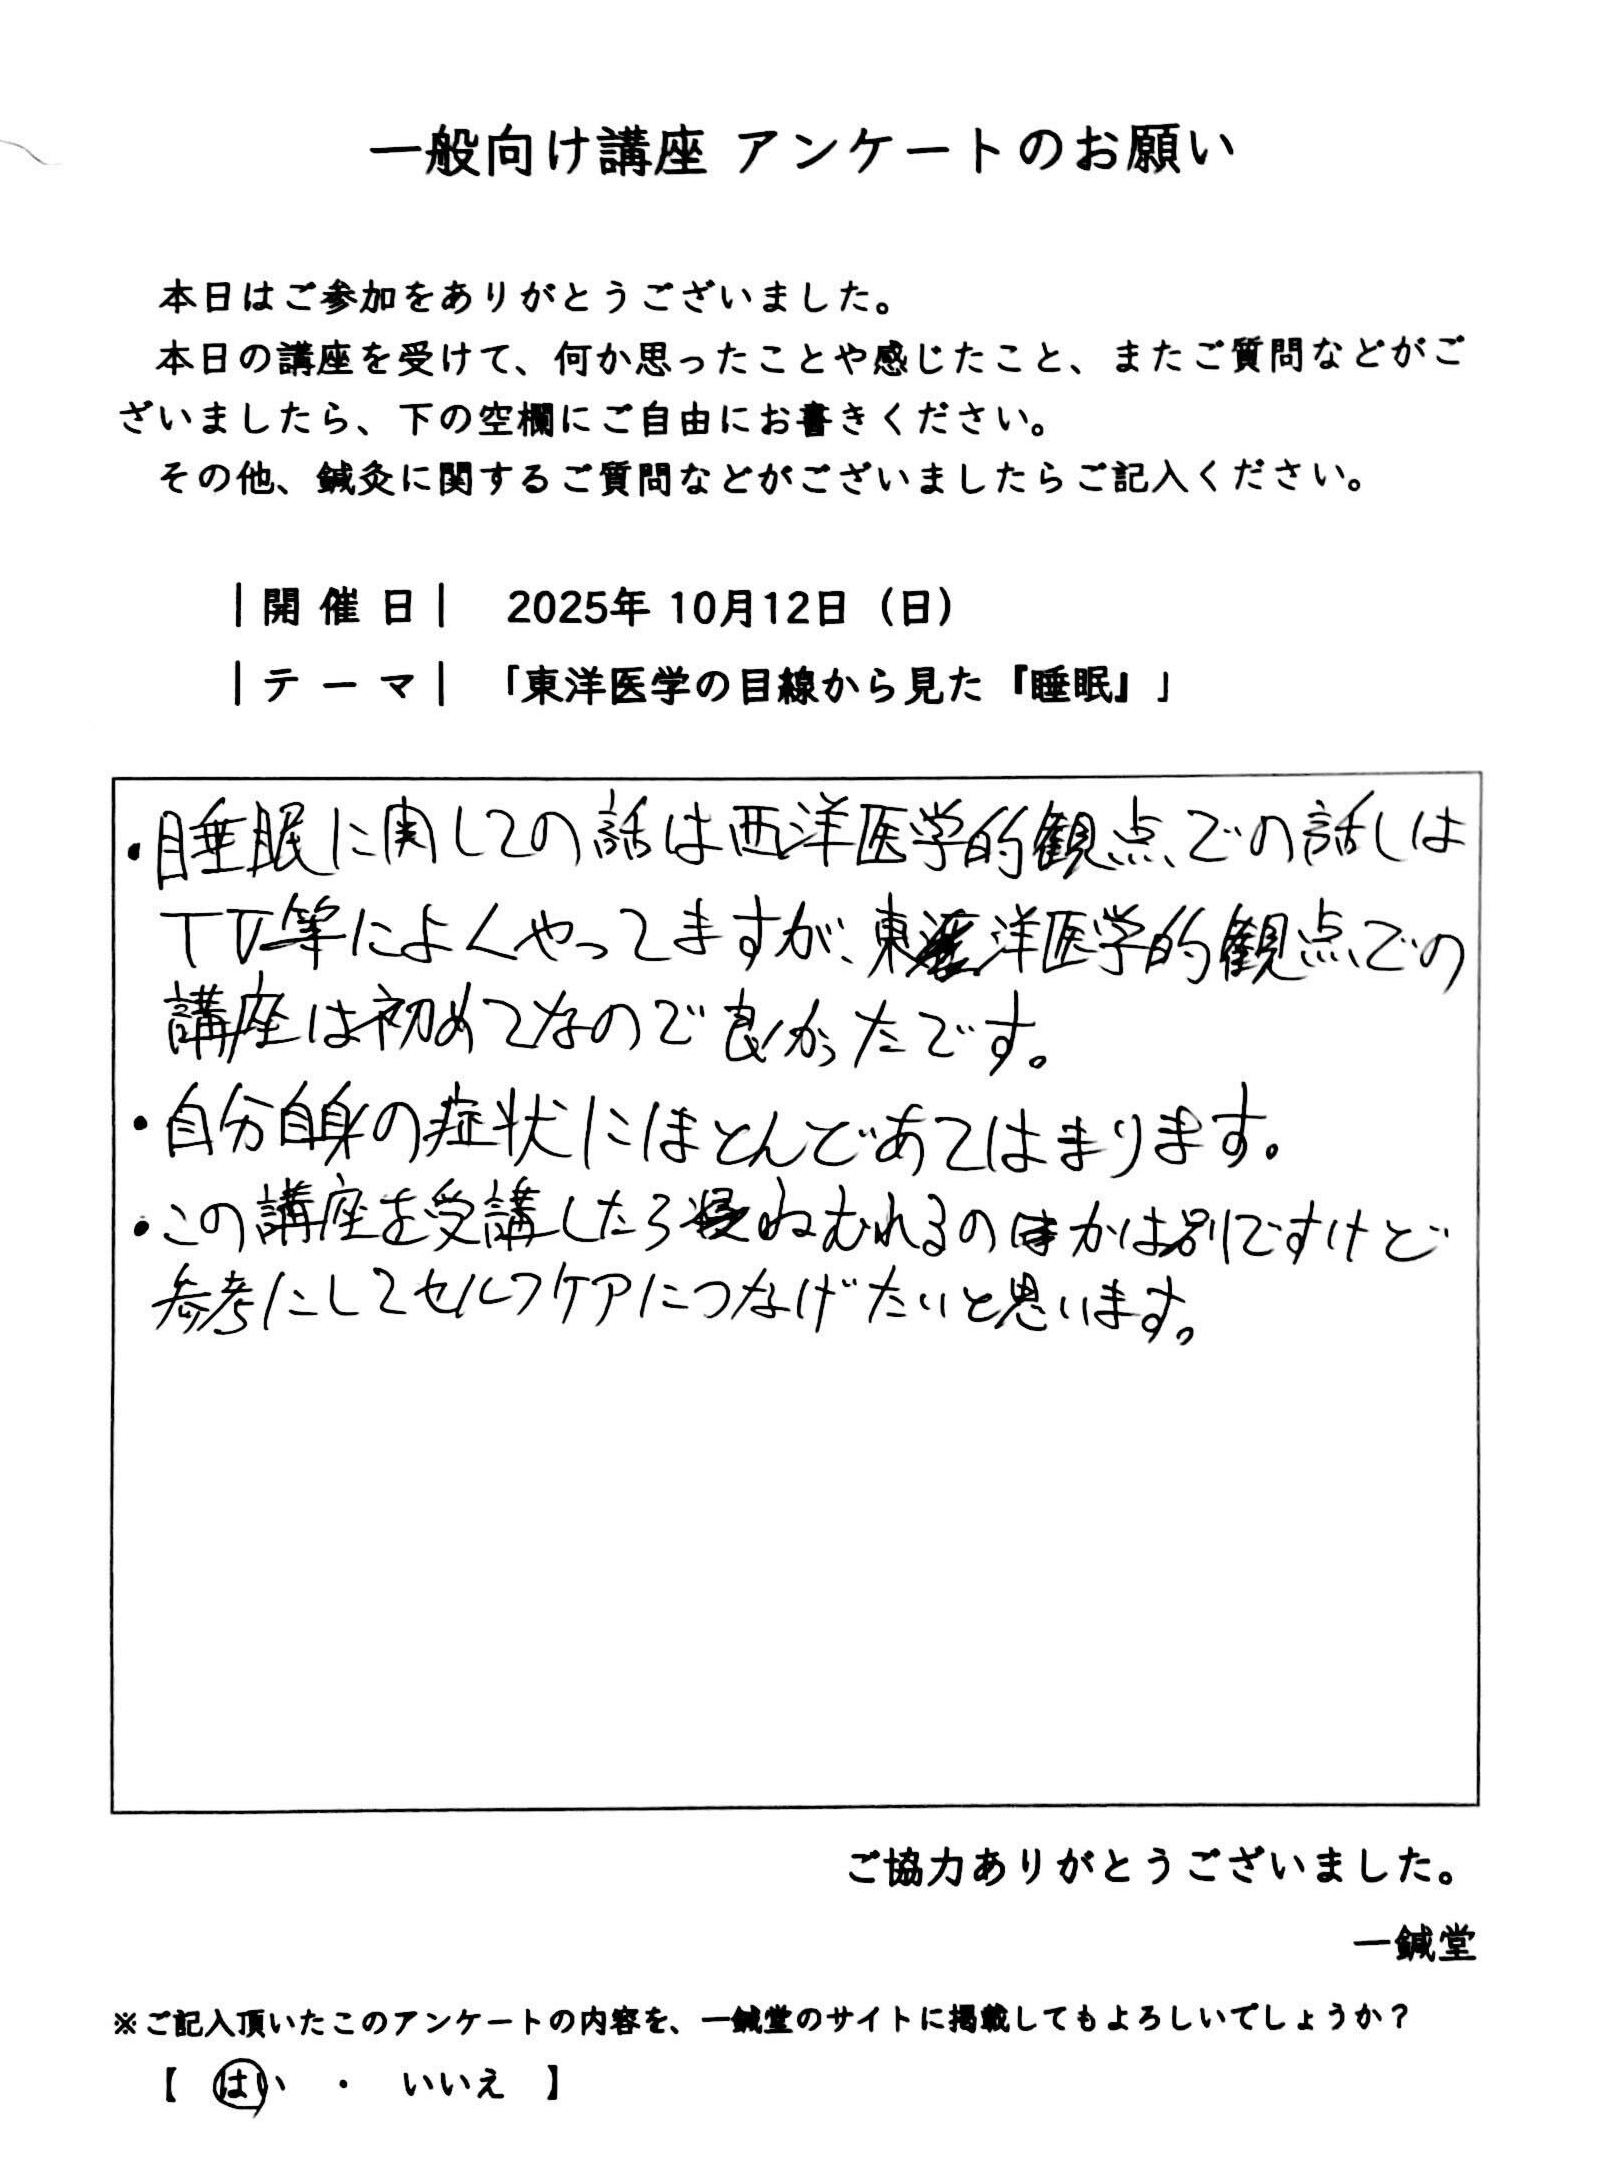 一般向け講座 アンケートのお願い
本日はご参加をありがとうございました。
本日の講座を受けて、何か思ったことや感じたこと、またご質問などがご
ざいましたら、下の空欄にご自由にお書きください。
その他、鍼灸に関するご質問などがございましたらご記入ください。
|開 催 日| 2025年 10月12日（日）
|テ ー マ| 「東洋医学の目線から見た『睡眠』」
・睡眠に関しての話は西洋医学的観点での話しは
TV等によくやってますが、東洋医学的観点での
講座は初めてなので良かったです。
・自分自身の症状にほとんどあてはまります。
・この講座を受講したらねむれるのかは別ですけど
参考にしてセルフケアにつなげたいと思います。
ご協力ありがとうございました。
一鍼堂
※ご記入頂いたこのアンケートの内容を、一鍼堂のサイトに掲載してもよろしいでしょうか？
【 はい ・ いいえ 】